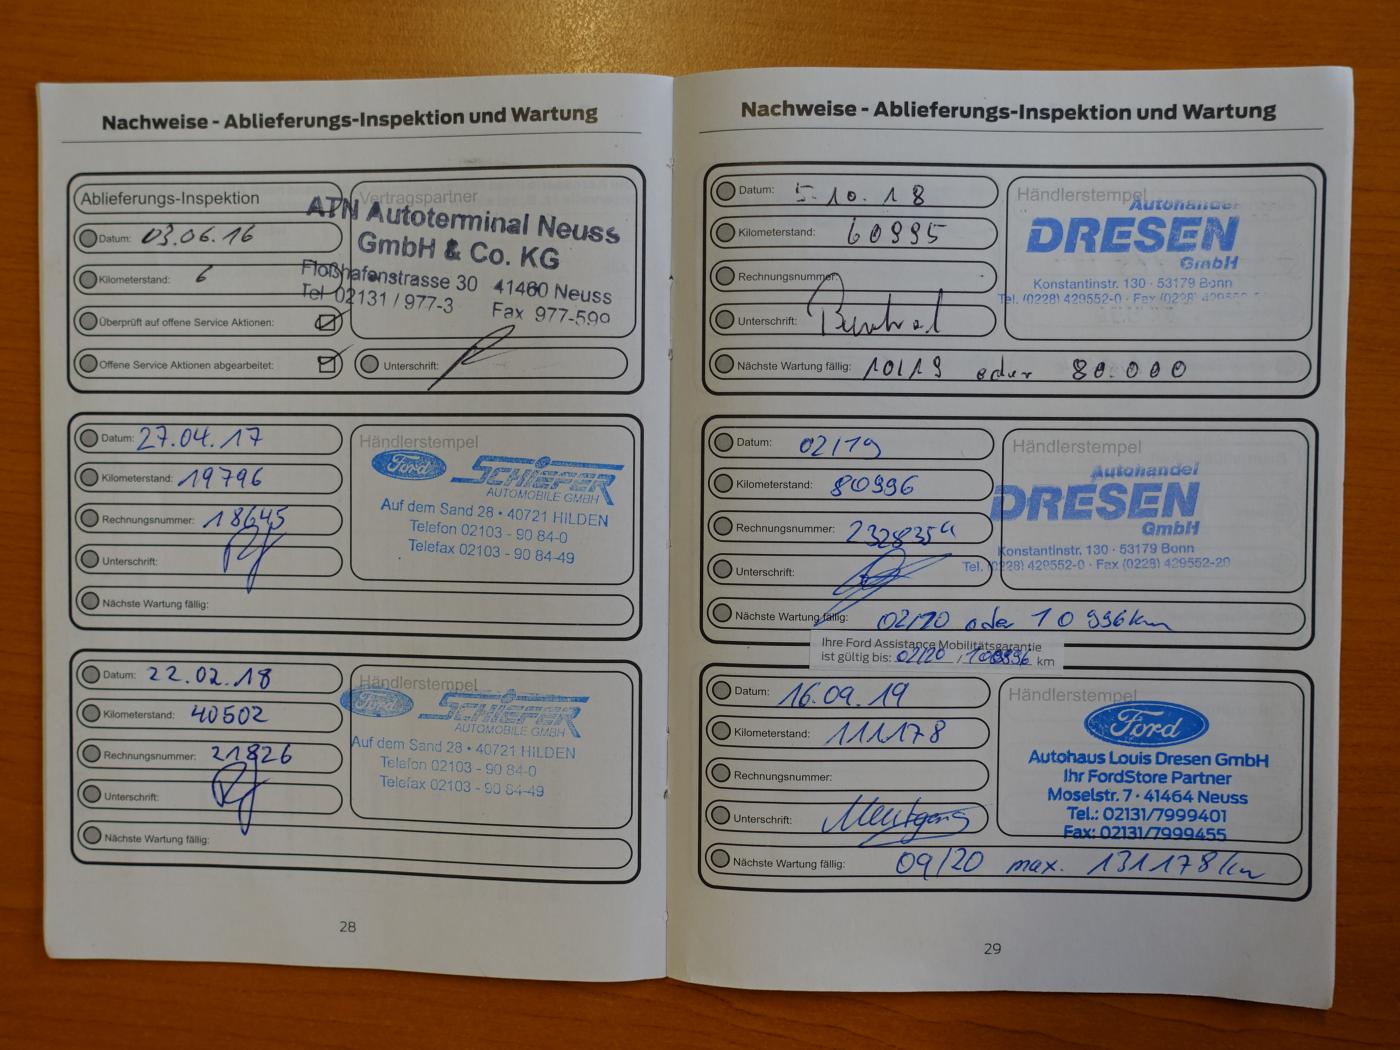 Nachweise - Ablieferungs-Inspektion und Wartung
Ablieferungs-Inspektion
Datum: 03.06.16
Kilometerstand: 6
Überprüft auf offene Service Aktionen:
Offene Service Aktionen abgearbeitet:
Vertragspartner
ATN Autoterminal Neuss
GmbH & Co. KG
Floßhafenstrasse 30 41460 Neuss
Tel 02131 / 977-3 Fax 977-599
Unterschrift:
Datum: 27.04.17
Kilometerstand: 19796
Rechnungsnummer: 18645
Unterschrift:
Nächste Wartung fällig:
Händlerstempel
Ford SCHIEFER
AUTOMOBILE GMBH
Auf dem Sand 28 • 40721 HILDEN
Telefon 02103 - 90 84-0
Telefax 02103 - 90 84-49
Datum: 22.02.18
Kilometerstand: 40502
Rechnungsnummer: 21826
Unterschrift:
Nächste Wartung fällig:
Händlerstempel
Ford SCHIEFER
AUTOMOBILE GMBH
Auf dem Sand 28 • 40721 HILDEN
Telefon 02103 - 90 84-0
Telefax 02103 - 90 84-49
28
Nachweise - Ablieferungs-Inspektion und Wartung
Datum: 5.10.18
Kilometerstand: 60995
Rechnungsnummer:
Unterschrift:
Nächste Wartung fällig: 10/19 oder 80.000
Händlerstempel
Autohandel
DRESEN
GmbH
Konstantinstr. 130 · 53179 Bonn
Tel. (0228) 429552-0 · Fax (0228)
Datum: 02/19
Kilometerstand: 80996
Rechnungsnummer: 2328354
Unterschrift:
Nächste Wartung fällig: 02/20 oder 10 996km
Händlerstempel
Autohandel
DRESEN
GmbH
Konstantinstr. 130 · 53179 Bonn
Tel. (0228) 429552-0 · Fax (0228) 429552-20
Ihre Ford Assistance Mobilitätsgarantie
ist gültig bis: 02/20 / 100996 km
Datum: 16.09.19
Kilometerstand: 111178
Rechnungsnummer:
Unterschrift:
Nächste Wartung fällig: 09/20 max. 131178 km
Händlerstempel
Ford
Autohaus Louis Dresen GmbH
Ihr FordStore Partner
Moselstr. 7 · 41464 Neuss
Tel.: 02131/7999401
Fax: 02131/7999455
29